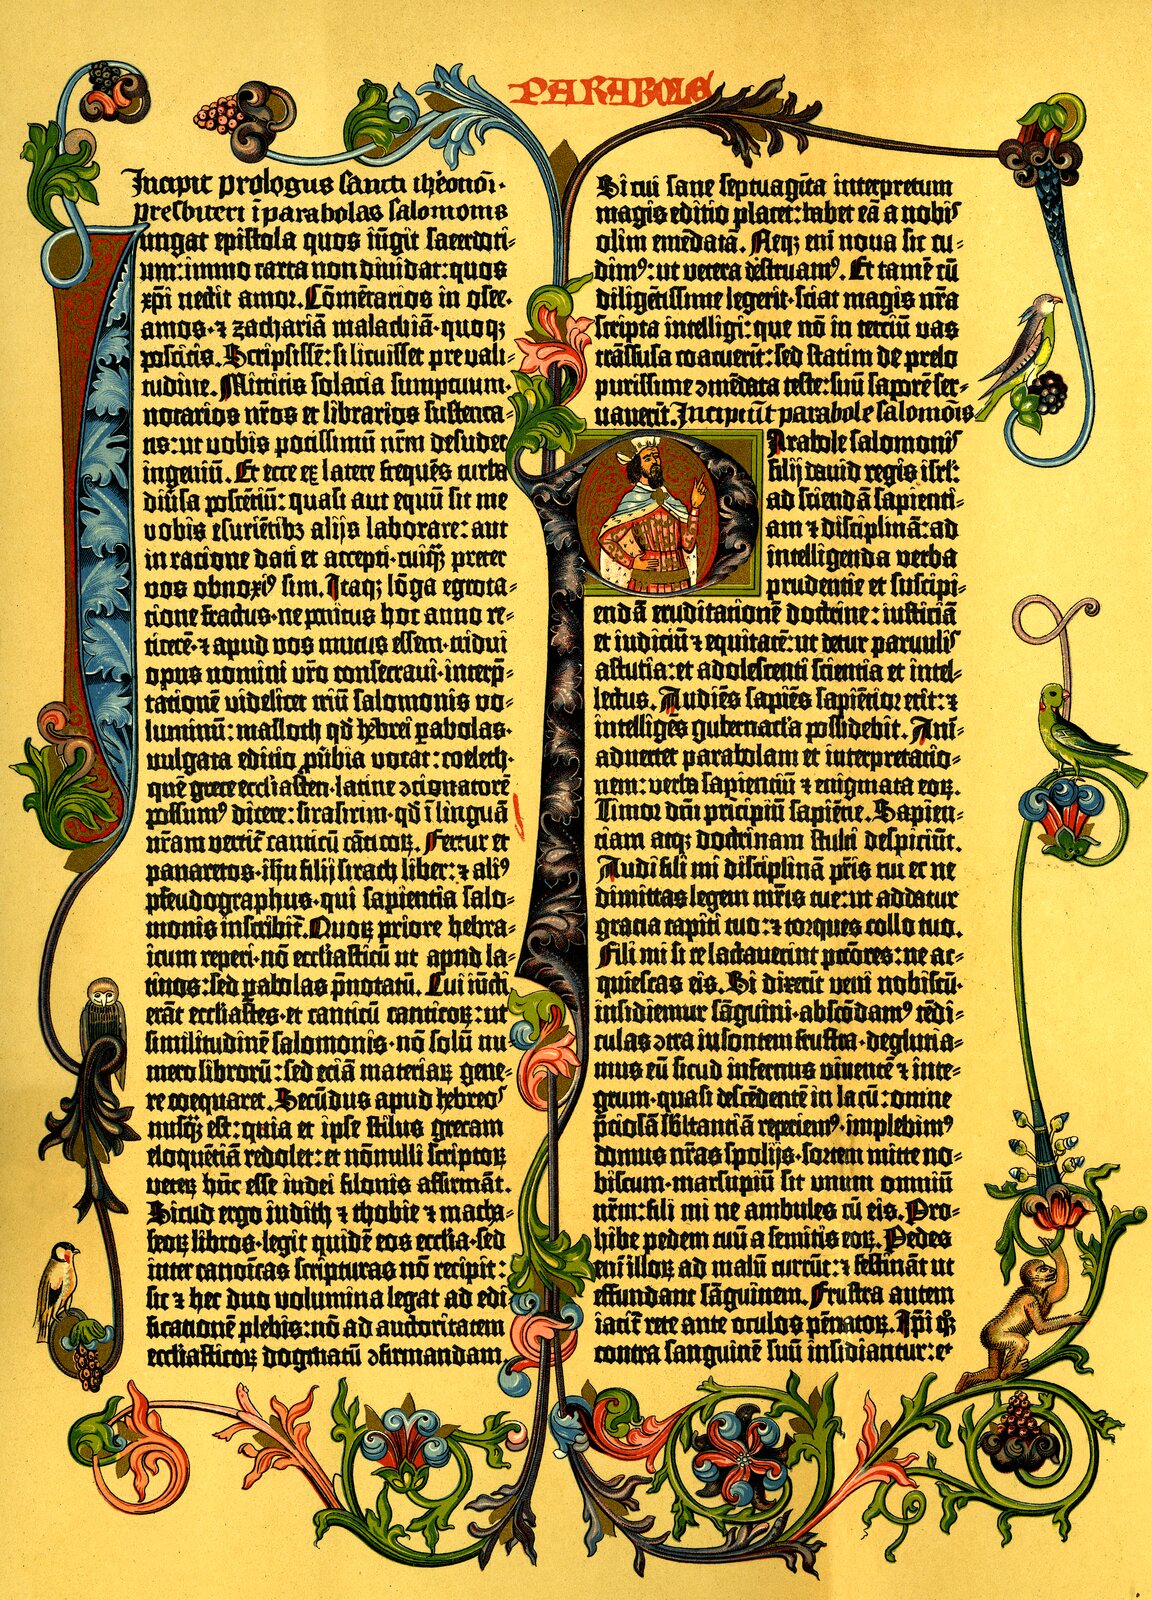 PARABOLE
Incipit prologus sancti iheronimi
presbiteri i parabolas salomonis
ungat epistola quos iūgit sacerdoti⸗
um: immo carta non dividat: quos
xp̄i nectit amor. Cōmētarios in osee.
amos· ⁊ zachariā malachiā· quoqꝫ
poscitis. Scripsissē: si licuisset pre vali⸗
tudine. Mittitis solacia sumptuum·
notarios nr̄os et librarios sustenta⸗
tis: ut vobis potissimū nr̄m desudet
ingeniū. Et ecce ex latere frequēs turba
diūsa poscētiū: quasi aut equū sit me
vobis esuriētibꝫ alijs laborare: aut
in ratione dati et accepti· cuiqꝫ preter
vos obnoxi⁹ sim. Itaqꝫ lōga egrota⸗
tione fractus· ne penitus hoc anno re⸗
ticerē· ⁊ apud vos mutus essem· tridui
opus nomini vr̄o consecravi· interp̄⸗
tationē videlicet triū salomonis vo⸗
luminū: masloth qd̄ hebrei pabolas·
vulgata editio pūbia vocat: coeleth·
quē grece ecclesiasten· latine ꝯcionatorē
possum⁹ dicere: sirasirim· qd̄ ī linguā
nr̄am vertit̄ canticū cāticoꝝ. Fertur et
panaretos· ihū filij sirach liber: ⁊ ali⁹
pseudographus· qui sapientia salo⸗
monis inscribit̄. Quoꝝ priore hebra⸗
icum reperi· nō ecclesiasticū ut apud la⸗
tinos: sed pabolas p̄notatū. Cui iūcti
erāt ecclesiastes· et canticū canticoꝝ: ut
similitudinē salomonis· nō solū nu⸗
mero librorū: sed etiā materiaꝝ gene⸗
re coequaret. Secūdus apud hebreos
nusqꝫ est: quia et ipse stilus grecam
eloquētiā redolet: et nōnulli scriptoꝝ
veteꝝ hūc esse iudei filonis affirmāt.
Sicud ergo iudith ⁊ thobie ⁊ macha⸗
beoꝝ libros· legit quidē eos ecclesia· sed
inter canoīcas scripturas nō recipit:
sic ⁊ hec duo volumina legat ad edi
ficationē plebis: nō ad auctoritatem
ecclesiasticoꝝ dogmatū ꝯfirmandam.
Si cui sane septuaginta interpretum
magis editio placet: habet eā a nobis
olim emēdatā. Neqꝫ enī nova sic cu⸗
dim⁹: ut vetera destruam⁹. Et tamē cū
diligētissime legerit· sciat magis nr̄a
scripta intelligi: que nō in terciū vas
trāsfusa coacuerit: sed statim de prelo
purissime ꝯmēdata teste: suū saporē ser⸗
vaverīt. Incipiūt parabole salomōis
Arabole salomonis
filij david regis isrl̄:
ad sciendā sapienti⸗
am ⁊ disciplinā: ad
intelligenda verba
prudentie et suscipi⸗
endā eruditationē doctrine: iusticiā
et iudiciū ⁊ equitatē: ut detur parvulis
astutia: et adolescenti scientia et intel⸗
lectus. Audiēs sapiēs sapiētior erit: ⁊
intelligēs gubernacl̄a possidebit. Ani⸗
advertet parabolam et interpretatio⸗
nem: verba sapientiū ⁊ enigmata eoꝝ.
Timor dn̄i prīcipiū sapiētie. Sapien⸗
tiam atqꝫ doctrinam stulti despiciūt.
Audi fili mi disciplinā pr̄is tui et ne
dimittas legem mr̄is tue: ut addatur
gracia capiti tuo: ⁊ torques collo tuo.
Fili mi si te lactaverint pctōres: ne ac⸗
quiescas eis. Si dixerīt veni nobiscū·
insidiemur sāguini· abscōdam⁹ tēdi⸗
culas ꝯtra insontem frustra· degluria⸗
mus eū sicud infernus viventē ⁊ inte⸗
grum· quasi descēdentē in lacū: omnē
p̄ciosā sūbstantiā reperiem⁹· implebim⁹
domus nr̄as spolijs· sortem mitte no⸗
biscum· marsupiū sit unum omniū
nr̄m: fili mi ne ambules cū eis. Pro⸗
hibe pedem tuū a semitis eoꝝ. Pedes
enī illoꝝ ad malū currūt: ⁊ festināt ut
effundant sāguinem. Frustra autem
iacit̄ rete ante oculos pēnatoꝝ. Ip̄i qꝫ
contra sanguinē suū insidiantur: et